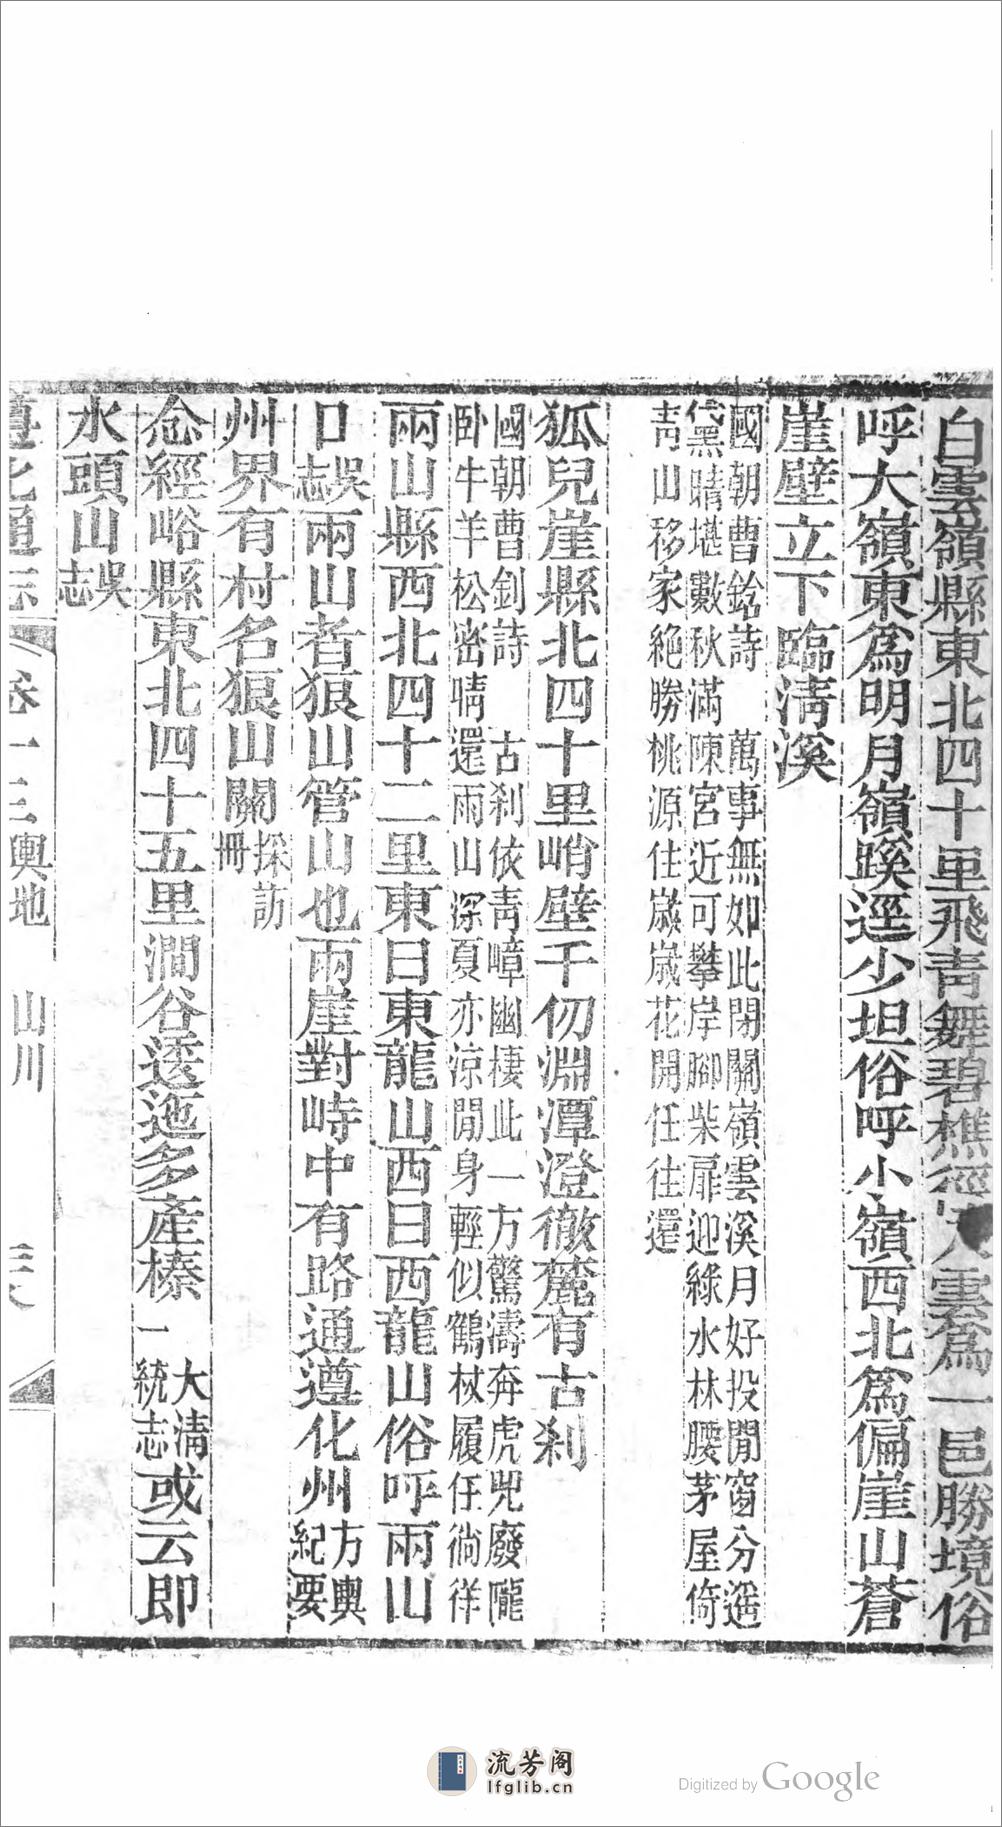 白雲嶺縣東北四十里飛青舞碧樵徑入雲爲一邑勝境俗
呼大嶺東爲明月嶺蹊逕少坦俗呼小嶺西北爲偏崖山蒼
崖壁立下臨清溪
國朝曹鈐詩 萬事無如此閉關嶺雲溪月好投閒窗分遥
黛晴堪數秋滿陳宮近可攀岸腳柴扉迎綠水林腰茅屋倚
青山移家絶勝桃源住嵗嵗花開任往還
狐兒崖縣北四十里峭壁千仞淵潭澄徹麓有古刹
國朝曹釗詩 古刹依青嶂幽棲此一方驚濤奔虎兕廢隴
卧牛羊松密晴還雨山深夏亦涼閒身輕似鶴杖履任徜徉
兩山縣西北四十二里東曰東龍山西曰西龍山俗呼兩山
口吳志兩山者狼山管山也兩崖對峙中有路通遵化州方輿紀要
州界有村名狼山關採訪冊
念經峪縣東北四十五里澗谷逶迤多產榛大清一統志或云即
水頭山吳志
遵化通志 卷十三輿地 山川
流芳阁
lfglib.cn
Digitized by Google